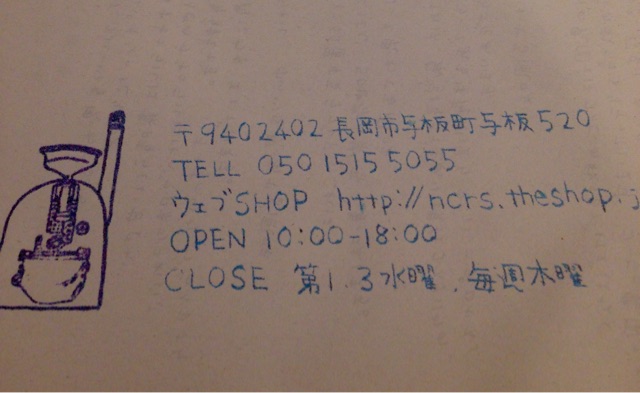 〒9402402 長岡市与板町与板520
TELL 050 1515 5055
ウェブSHOP http://ncrs.theshop.j
OPEN 10:00-18:00
CLOSE 第1.3水曜、毎週木曜